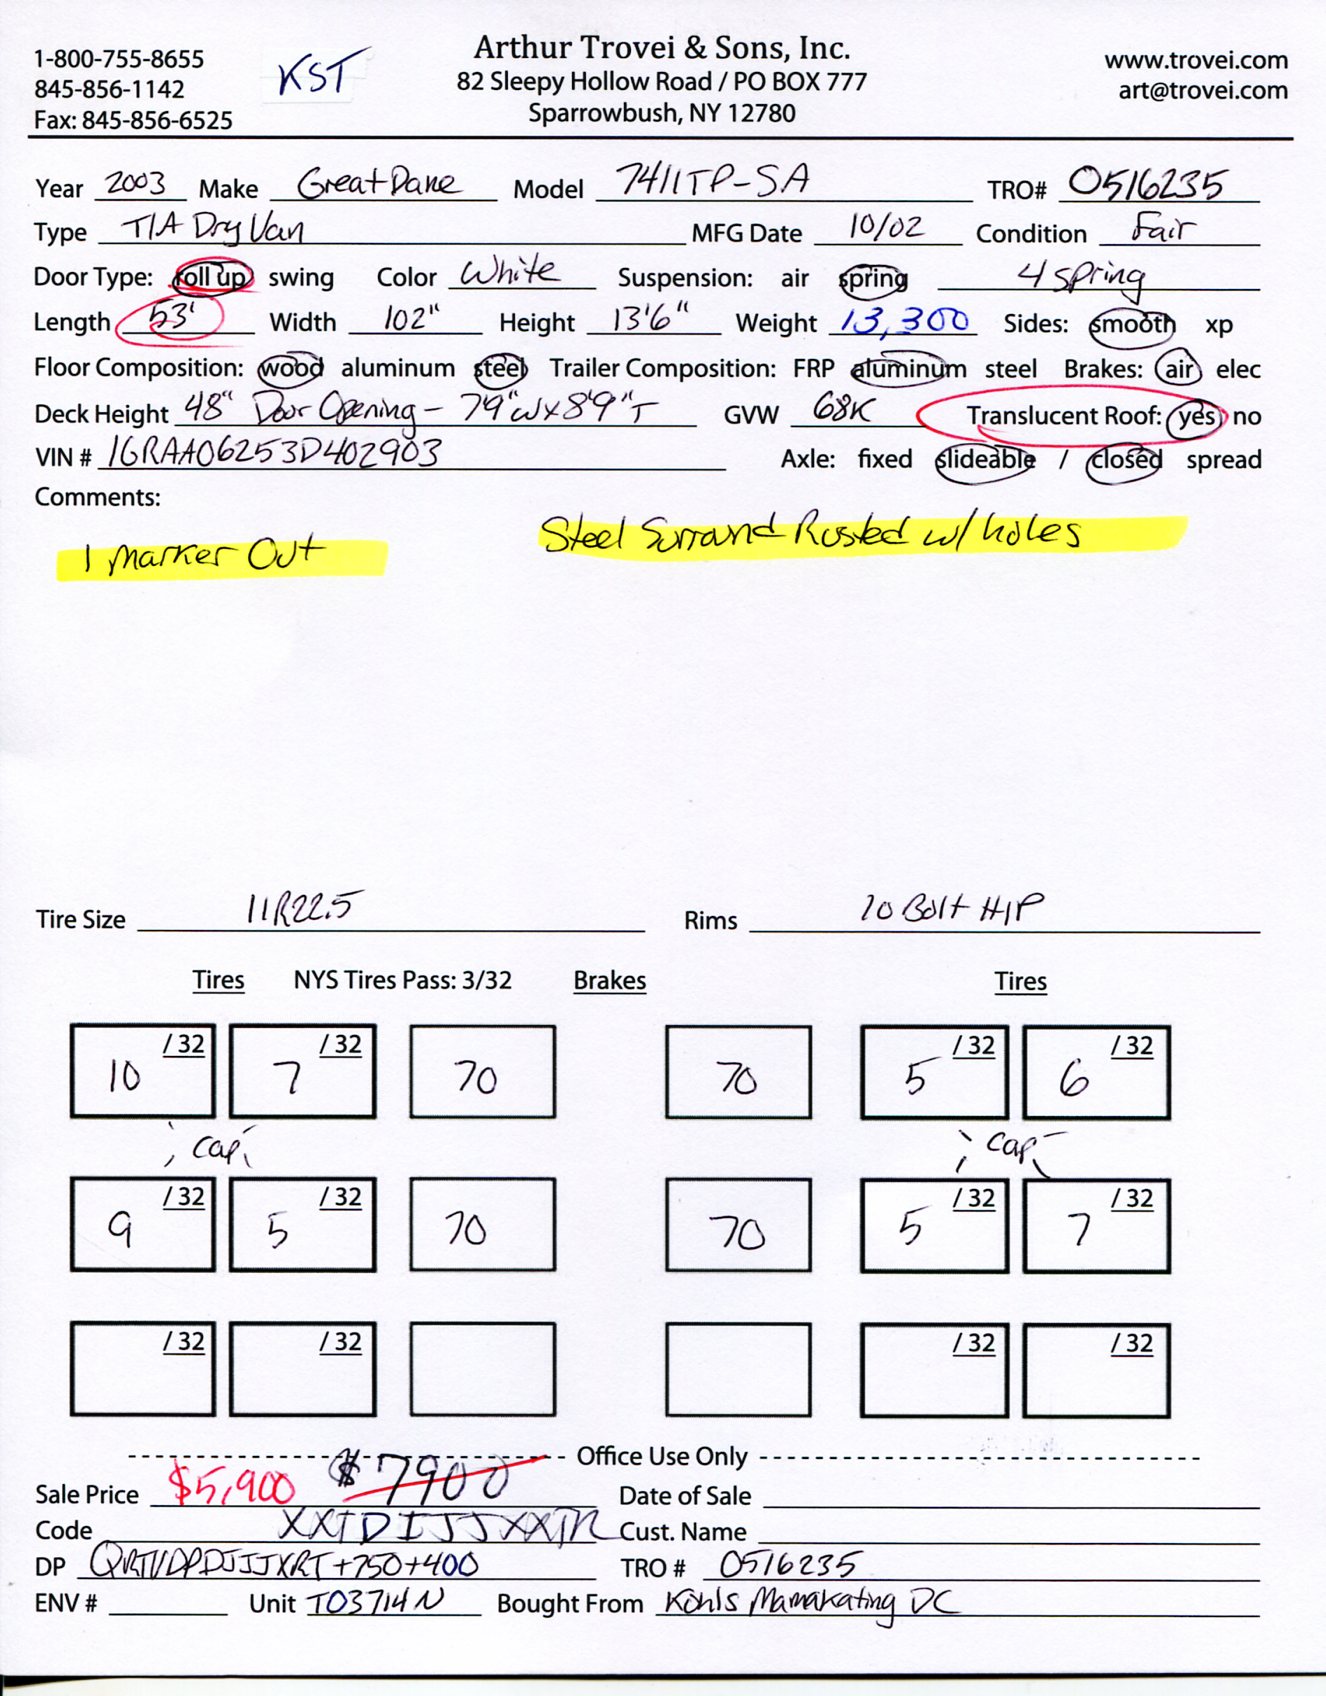 1-800-755-8655
845-856-1142
Fax: 845-856-6525
KST
Arthur Trovei & Sons, Inc.
82 Sleepy Hollow Road / PO BOX 777
Sparrowbush, NY 12780
www.trovei.com
art@trovei.com
Year 2003 Make Great Dane Model 7411TP-SA TRO# 0516235
Type T/A Dry Van MFG Date 10/02 Condition Fair
Door Type: roll up swing Color White Suspension: air spring 4 spring
Length 53' Width 102" Height 13'6" Weight 13,300 Sides: smooth xp
Floor Composition: wood aluminum steel Trailer Composition: FRP aluminum steel Brakes: air elec
Deck Height 48" Door Opening - 79"W x 8'9"T GVW 68K Translucent Roof: yes no
VIN # 1GRAA06253D402903 Axle: fixed slideable / closed spread
Comments:
1 Marker Out Steel Surround Rusted w/ holes
Tire Size 11R22.5 Rims 10 Bolt H/P
Tires NYS Tires Pass: 3/32 Brakes Tires
10 /32 7 /32 70 70 5 /32 6 /32
Cap Cap
9 /32 5 /32 70 70 5 /32 7 /32
/32 /32 /32 /32
Office Use Only
Sale Price $5,900 $7900 Date of Sale
Code Cust. Name
DP +750+400 TRO # 0516235
ENV # Unit T03714N Bought From Kohls Mamakating DC